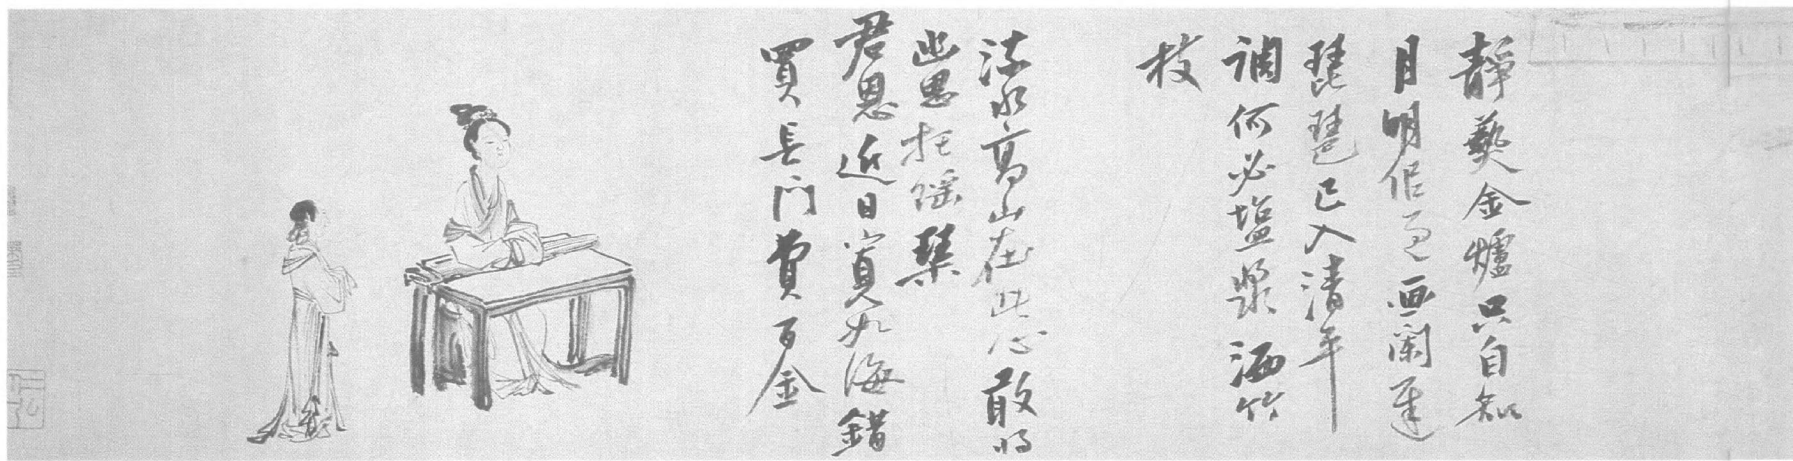 靜爇金爐只自知
月明但過画闌遲
琵琶已入清平
調何必塩漿洒竹
枝
流水高山在此心敢將
幽思托瑶琴
君恩近日寬如海錯
買長門費百金